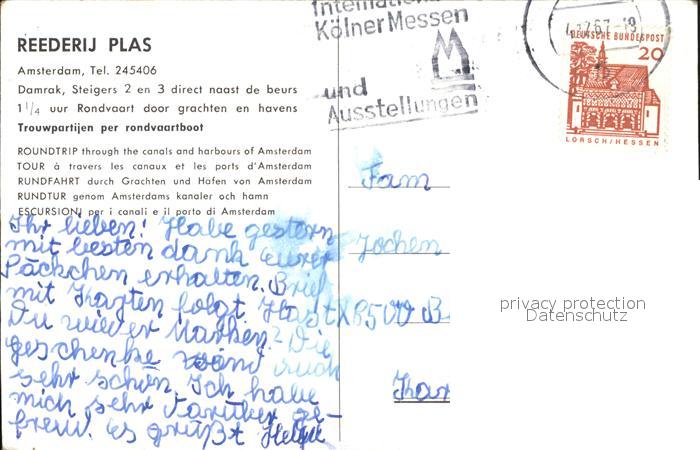 REEDERIJ PLAS
Amsterdam, Tel. 245406
Damrak, Steigers 2 en 3 direct naast de beurs
1 1/4 uur Rondvaart door grachten en havens
Trouwpartijen per rondvaartboot
ROUNDTRIP through the canals and harbours of Amsterdam
TOUR à travers les canaux et les ports d'Amsterdam
RUNDFAHRT durch Grachten und Häfen von Amsterdam
RUNDTUR genom Amsterdams kanaler och hamn
ESCURSIONI per i canali e il porto di Amsterdam
Internationale
Kölner Messen
und
Ausstellungen
DEUTSCHE BUNDESPOST
20
LORSCH/HESSEN
Ihr lieben! Habe gestern
mit besten dank eurer
Päckchen erhalten. Brief
mit Karten folgt. Hast
Du wieder Marken? Die
geschenke sind auch
sehr schön. Ich habe
mich sehr darüber ge-
freut. Es grüßt
Fam
Jochen
8500
privacy protection
Datenschutz